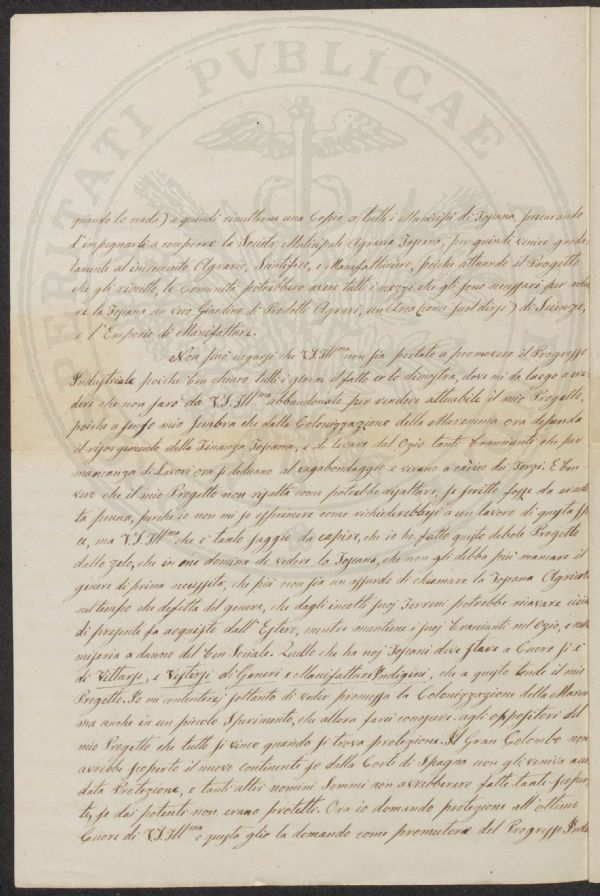 PERITATI PVBLICAE
quando lo creda) e quindi rimetterne una Copia a tutti i Municipj di Toscana, procurando
d'impegnarli a comporre la Società Municipale Agraria Toscana, per quindi venire grada-
tamente al incremento Agrario, Scientifico, e Manifatturiere, poichè attuando il Progetto
che gli rimetto, le Comunità potrebbero avere tutti i mezzi che gli sono necessarj per ridur
re la Toscana un vero Giardino di Prodotti Agrarj, un Arca (come suol dirsi) di Scienze,
e l'Emporio di Manifatture.
Non può negarsi che V.S. Ill.ma non sia portato a promovere il Progresso
Industriale poichè ben chiaro tutti i giorni il fatto ce lo dimostra, dove mi da luogo a cre
dere che non sarò da V.S. Ill.ma abbandonato per rendere attuabile il mio Progetto,
poichè a senso mio sembra che dalla Colonizzazione della Maremma ora dependa
il risorgimento della Finanza Toscana, e di levare dal Ozio tanti Braccianti che per
mancanza di Lavori ora si dedicano al vagabondaggio e vivano a carico dei Terzi. E ben
vero che il mio Progetto non risalta come potrebbe risaltare, se scritto fosse da erudi
ta penna, perchè io non mi so esprimere come richiederebbesi a un lavoro di questa spe
cie, ma V.S. Ill.ma che è tanto saggio da capire, che io ho fatto questo debole Progetto
dallo zelo, che in me domina di vedere la Toscana, che non gli debba più mancare il
genere di prima necessità, che più non sia un assurdo di chiamare la Toscana Agricola
nel tempo che difetta del genere, che dagli incolti suoj Terreni potrebbe ricavare ciò che
di presente fa acquisto dall'Estero, mentre mantiene i suoj Braccianti nel Ozio, e nella
miseria a danno del ben Sociale. Quello che ha noj Toscani deve stare a Cuore si è
di Vittarsi, e Vestirsi di Generi e Manifatture Indigini, che a questo tende il mio
Progetto. Io mi contenterej soltanto di veder promossa la Colonizzazione della Marem
ma anche in un piccolo Sperimento, che allora farei conoscere agli oppositori del
mio Progetto che tutto si vince quando si trova protezione. Il Gran Colombo non
avrebbe scoperto il nuovo continente se dalla Corte di Spagna non gli veniva accor
data Protezione, e tanti altri uomini Sommi non avrebberero fatte tante scoper
te, se dai potenti non erano protetti. Ora io domando protezione all'ottimo
Cuore di V.S. Ill.ma e questa glie la domando come promutore del Progresso Indu